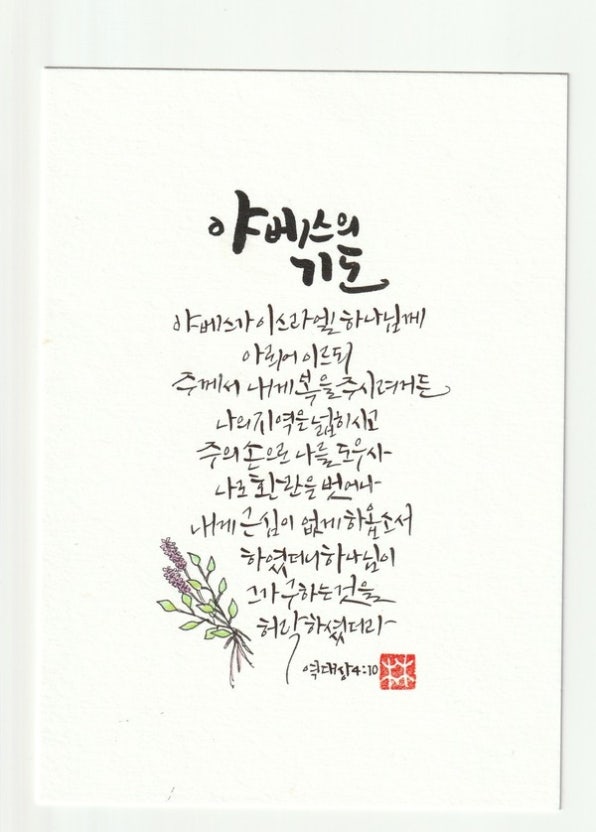 야베스의
기도
야베스가 이스라엘 하나님께
아뢰어 이르되
주께서 내게 복을 주시려거든
나의 지역을 넓히시고
주의 손으로 나를 도우사
나로 환난을 벗어나
내게 근심이 없게 하옵소서
하였더니 하나님이
그가 구하는 것을
허락하셨더라
역대상4:10